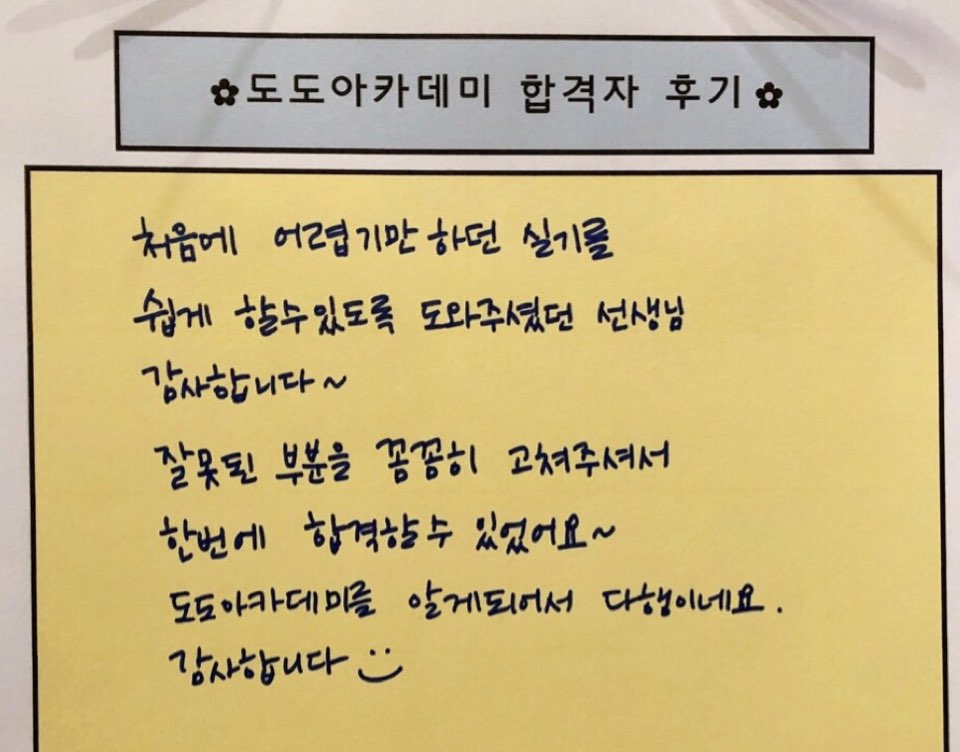 ✿도도아카데미 합격자 후기✿
처음에 어렵기만 하던 실기를
쉽게 할수있도록 도와주셨던 선생님
감사합니다~
잘못된 부분을 꼼꼼히 고쳐주셔서
한번에 합격할수 있었어요~
도도아카데미를 알게되어서 다행이네요.
감사합니다